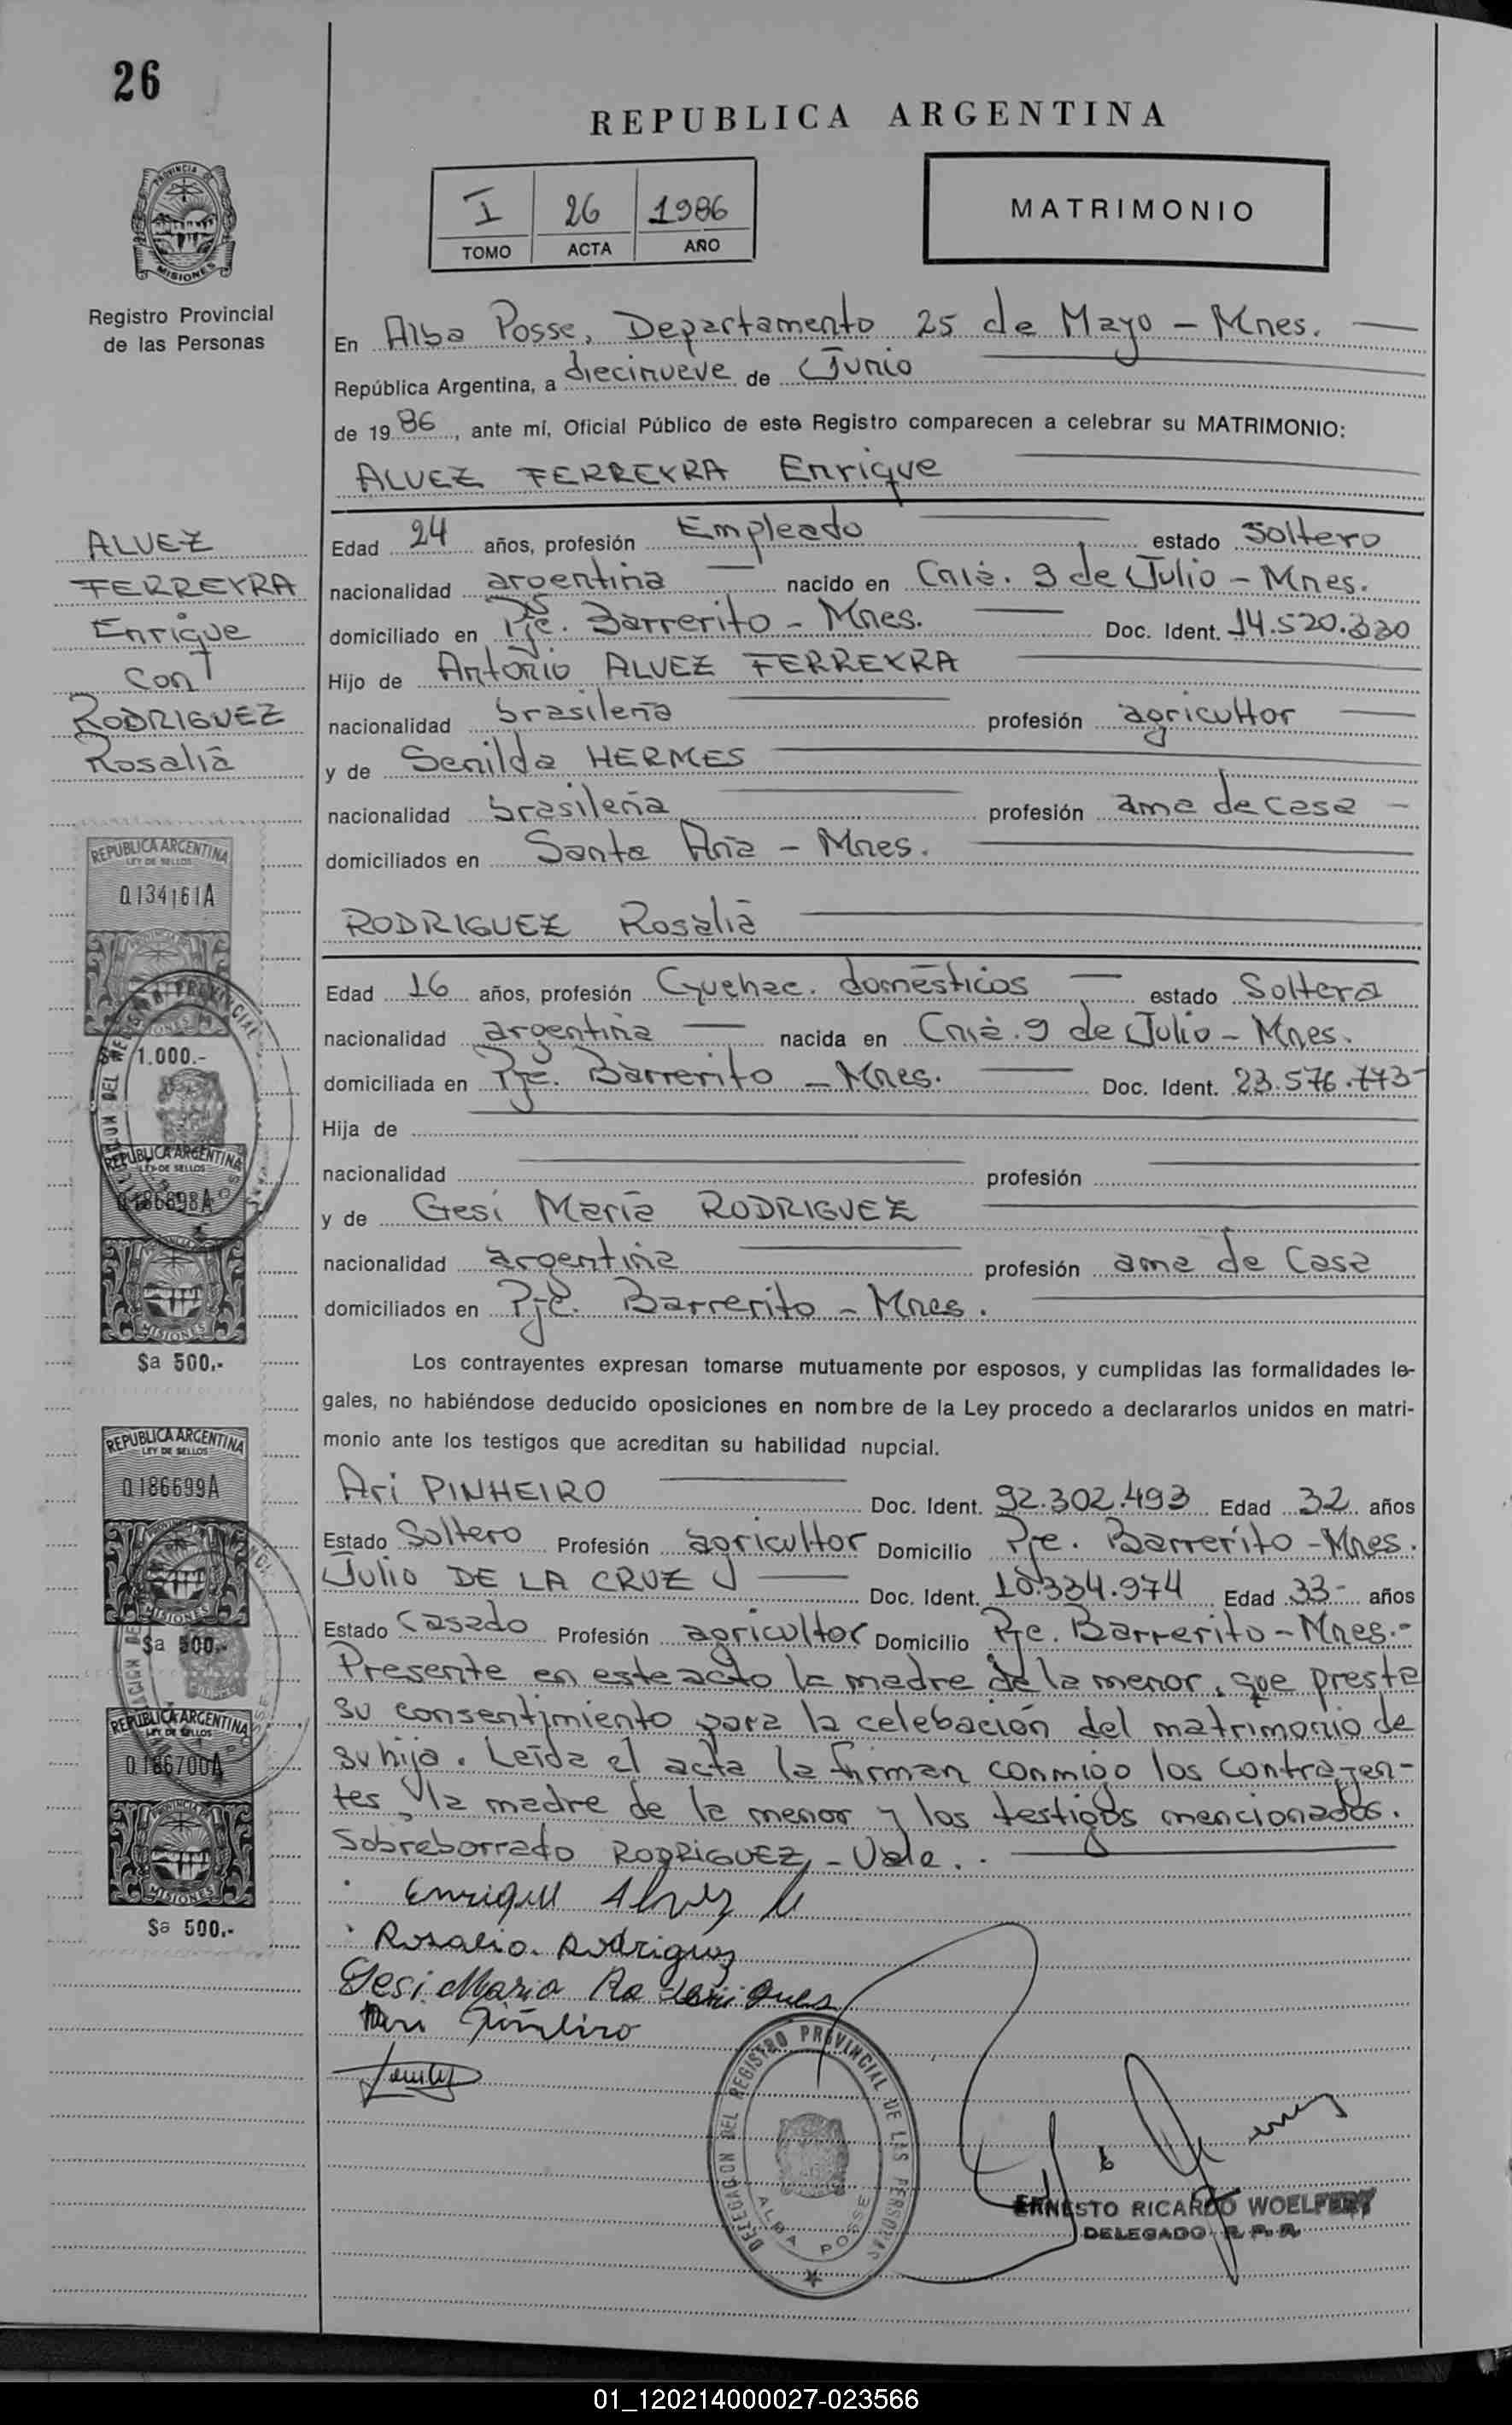 26
REPUBLICA ARGENTINA
PROVINCIA DE
MISIONES
I 26 1986
TOMO ACTA AÑO
MATRIMONIO
Registro Provincial
de las Personas
En Alba Posse, Departamento 25 de Mayo - Mnes.
República Argentina, a diecinueve de Junio
de 1986, ante mí, Oficial Público de este Registro comparecen a celebrar su MATRIMONIO:
ALVEZ FERREYRA Enrique
ALVEZ
FERREYRA
Enrique
con
RODRIGUEZ
Rosalia
Edad 24 años, profesión Empleado estado Soltero
nacionalidad argentina nacido en Cnia. 9 de Julio - Mnes.
domiciliado en Pje. Barrerito - Mnes. Doc. Ident. 14.520.330
Hijo de Antonio ALVEZ FERREYRA
nacionalidad brasileña profesión agricultor
y de Senilda HERMES
nacionalidad brasileña profesión ama de casa
domiciliados en Santa Ana - Mnes.
RODRIGUEZ Rosalia
Edad 16 años, profesión Quehac. domésticos estado Soltera
nacionalidad argentina nacida en Cnia. 9 de Julio - Mnes.
domiciliada en Pje. Barrerito - Mnes. Doc. Ident. 23.576.773
Hija de
nacionalidad profesión
y de Gesi Maria RODRIGUEZ
nacionalidad argentina profesión ama de casa
domiciliados en Pje. Barrerito - Mnes.
Los contrayentes expresan tomarse mutuamente por esposos, y cumplidas las formalidades le-
gales, no habiéndose deducido oposiciones en nombre de la Ley procedo a declararlos unidos en matri-
monio ante los testigos que acreditan su habilidad nupcial.
Ari PINHEIRO Doc. Ident. 92.302.493 Edad 32 años
Estado Soltero Profesión agricultor Domicilio Pje. Barrerito - Mnes.
Julio DE LA CRUZ Doc. Ident. 10.334.974 Edad 33 años
Estado Casado Profesión agricultor Domicilio Pje. Barrerito - Mnes.-
Presente en este acto la madre de la menor, que presta
su consentimiento para la celebación del matrimonio de
su hija. Leída el acta la firman conmigo los contrayen-
tes, la madre de la menor y los testigos mencionados.
Sobreborrado RODRIGUEZ - Vale.
Enrique Alvez
Rosalia Rodriguez
Gesi Maria Rodrigues
Ari Piñeiro
REPUBLICA ARGENTINA
LEY DE SELLOS
0134161A
1.000.-
REPUBLICA ARGENTINA
LEY DE SELLOS
0186698A
MISIONES
$a 500,-
REPUBLICA ARGENTINA
LEY DE SELLOS
0186699A
MISIONES
$a 500,-
REPUBLICA ARGENTINA
LEY DE SELLOS
0186700A
MISIONES
$a 500,-
DELEGACION DEL REGISTRO PROVINCIAL DE LAS PERSONAS
ALBA POSSE
ERNESTO RICARDO WOELFERT
DELEGADO R. P. P.
01_120214000027-023566